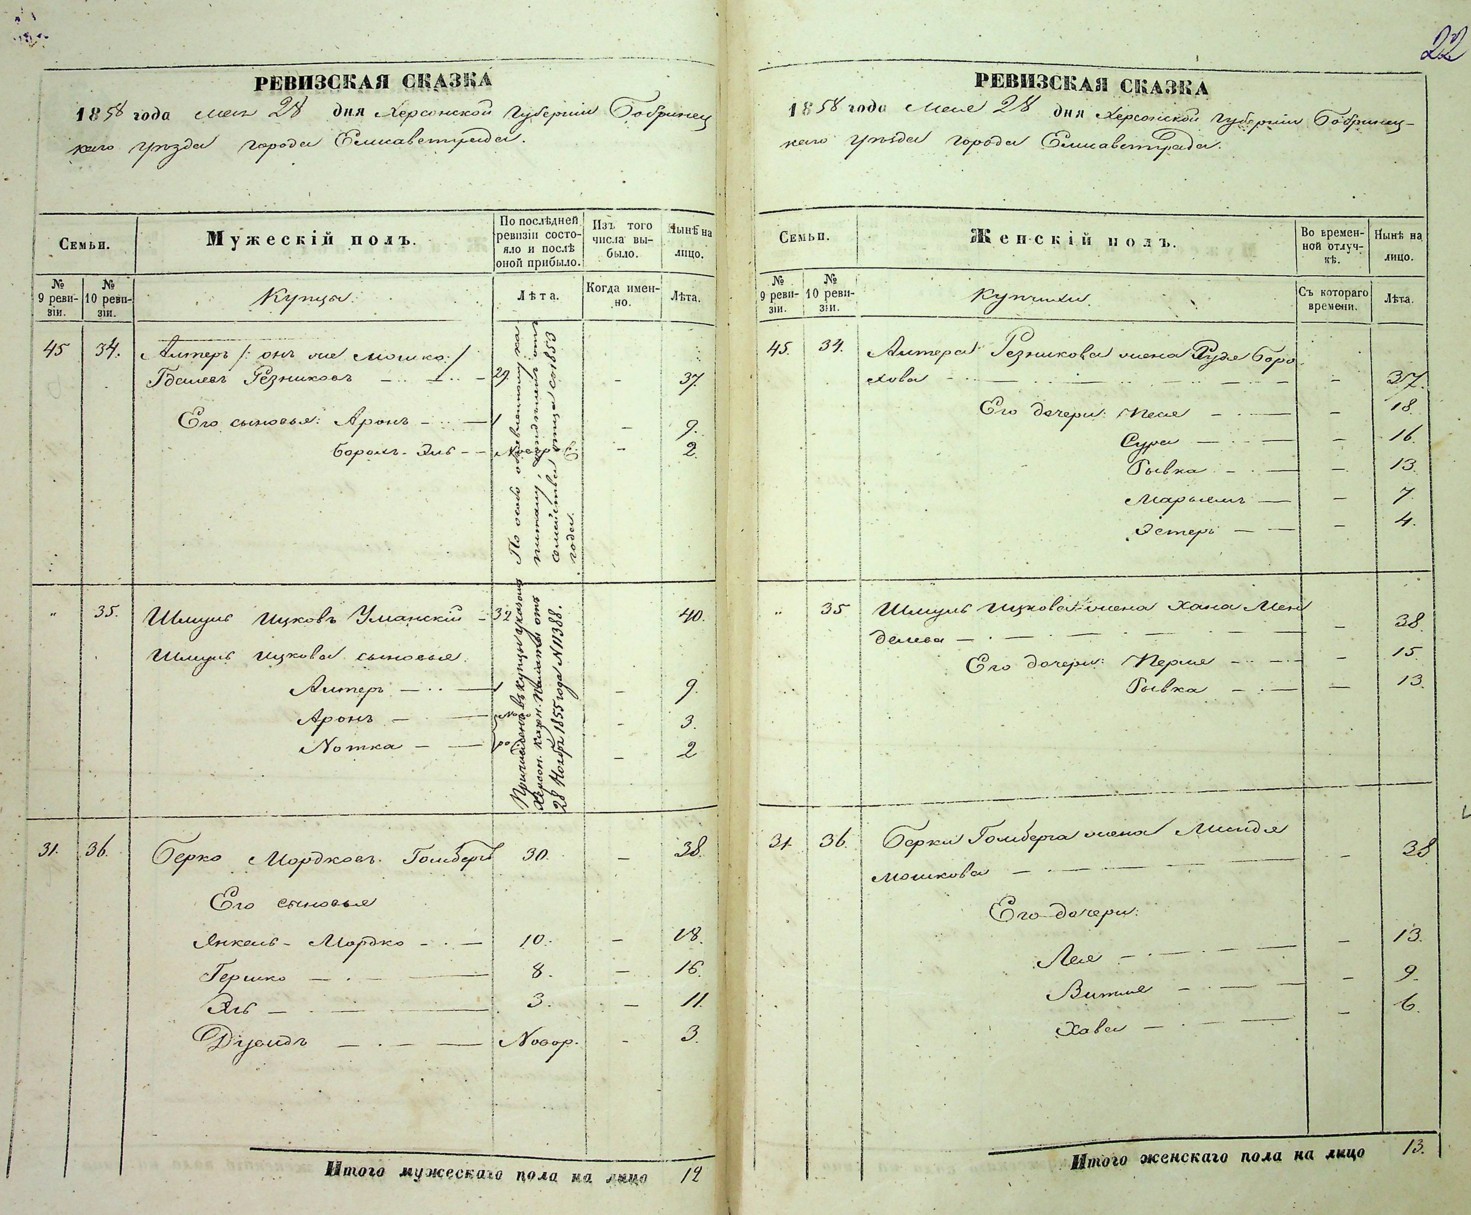 22
РЕВИЗСКАЯ СКАЗКА
1858 года мая 28 дня Херсонской Губерніи Бобринец
каго уѣзда города Елисаветграда.
Семьи.
Мужескій полъ.
По послѣдней ревизіи состояло и послѣ оной прибыло.
Изъ того числа выбыло.
Нынѣ на лицо.
№ 9 ревизіи.
№ 10 ревизіи.
Купцы.
Лѣта.
Когда именно.
Лѣта.
45 34. Алтеръ /: онъ же Мошко :/
Гдалевъ Резниковъ 29 – 37
Его сыновья: Аронъ 1 – 9.
Борохъ-Эль Новор. – 2.
семейства отца съ 1853
года.
„ 35. Шмуль Ицковъ Уманскій 32 40.
Шмуля Ицкова сыновья.
Алтеръ 1 – 9.
Аронъ – 3.
Нотка – 2
Причисленъ въ купцы указомъ
Херсон. казен. Палаты отъ
28 Ноября 1855 года N 11388.
31. 36. Берко Мордковъ Гомбергъ 30. – 38.
Его сыновья
Янкель-Мордко 10. – 18.
Гершко 8. – 16.
Эль 3. – 11.
Дувидъ Новор. – 3.
Итого мужескаго пола на лицо 12
РЕВИЗСКАЯ СКАЗКА
1858 года мая 28 дня Херсонской Губерніи Бобринец-
каго уѣзда города Елисаветграда.
Семьи.
Женскій полъ.
Во временной отлучкѣ.
Нынѣ на лицо.
№ 9 ревизіи.
№ 10 ревизіи.
Купчихи
Съ котораго времени.
Лѣта.
45. 34. Алтера Резникова жена Рудя Боро
хова – 37.
Его дочери: Песя – 18.
Сура – 16.
Рывка – 13.
Марьямъ – 7.
Эстеръ – 4.
„ 35 Шмуля Ицкова жена Хана Мен
делева – 38.
Его дочери: Перля – 15.
Рывка – 13.
31 36. Берки Гомберга жена Миндля
Мошкова – 38
Его дочери:
Лея – 13.
Витля – 9.
Хава – 6.
Итого женскаго пола на лицо 13.